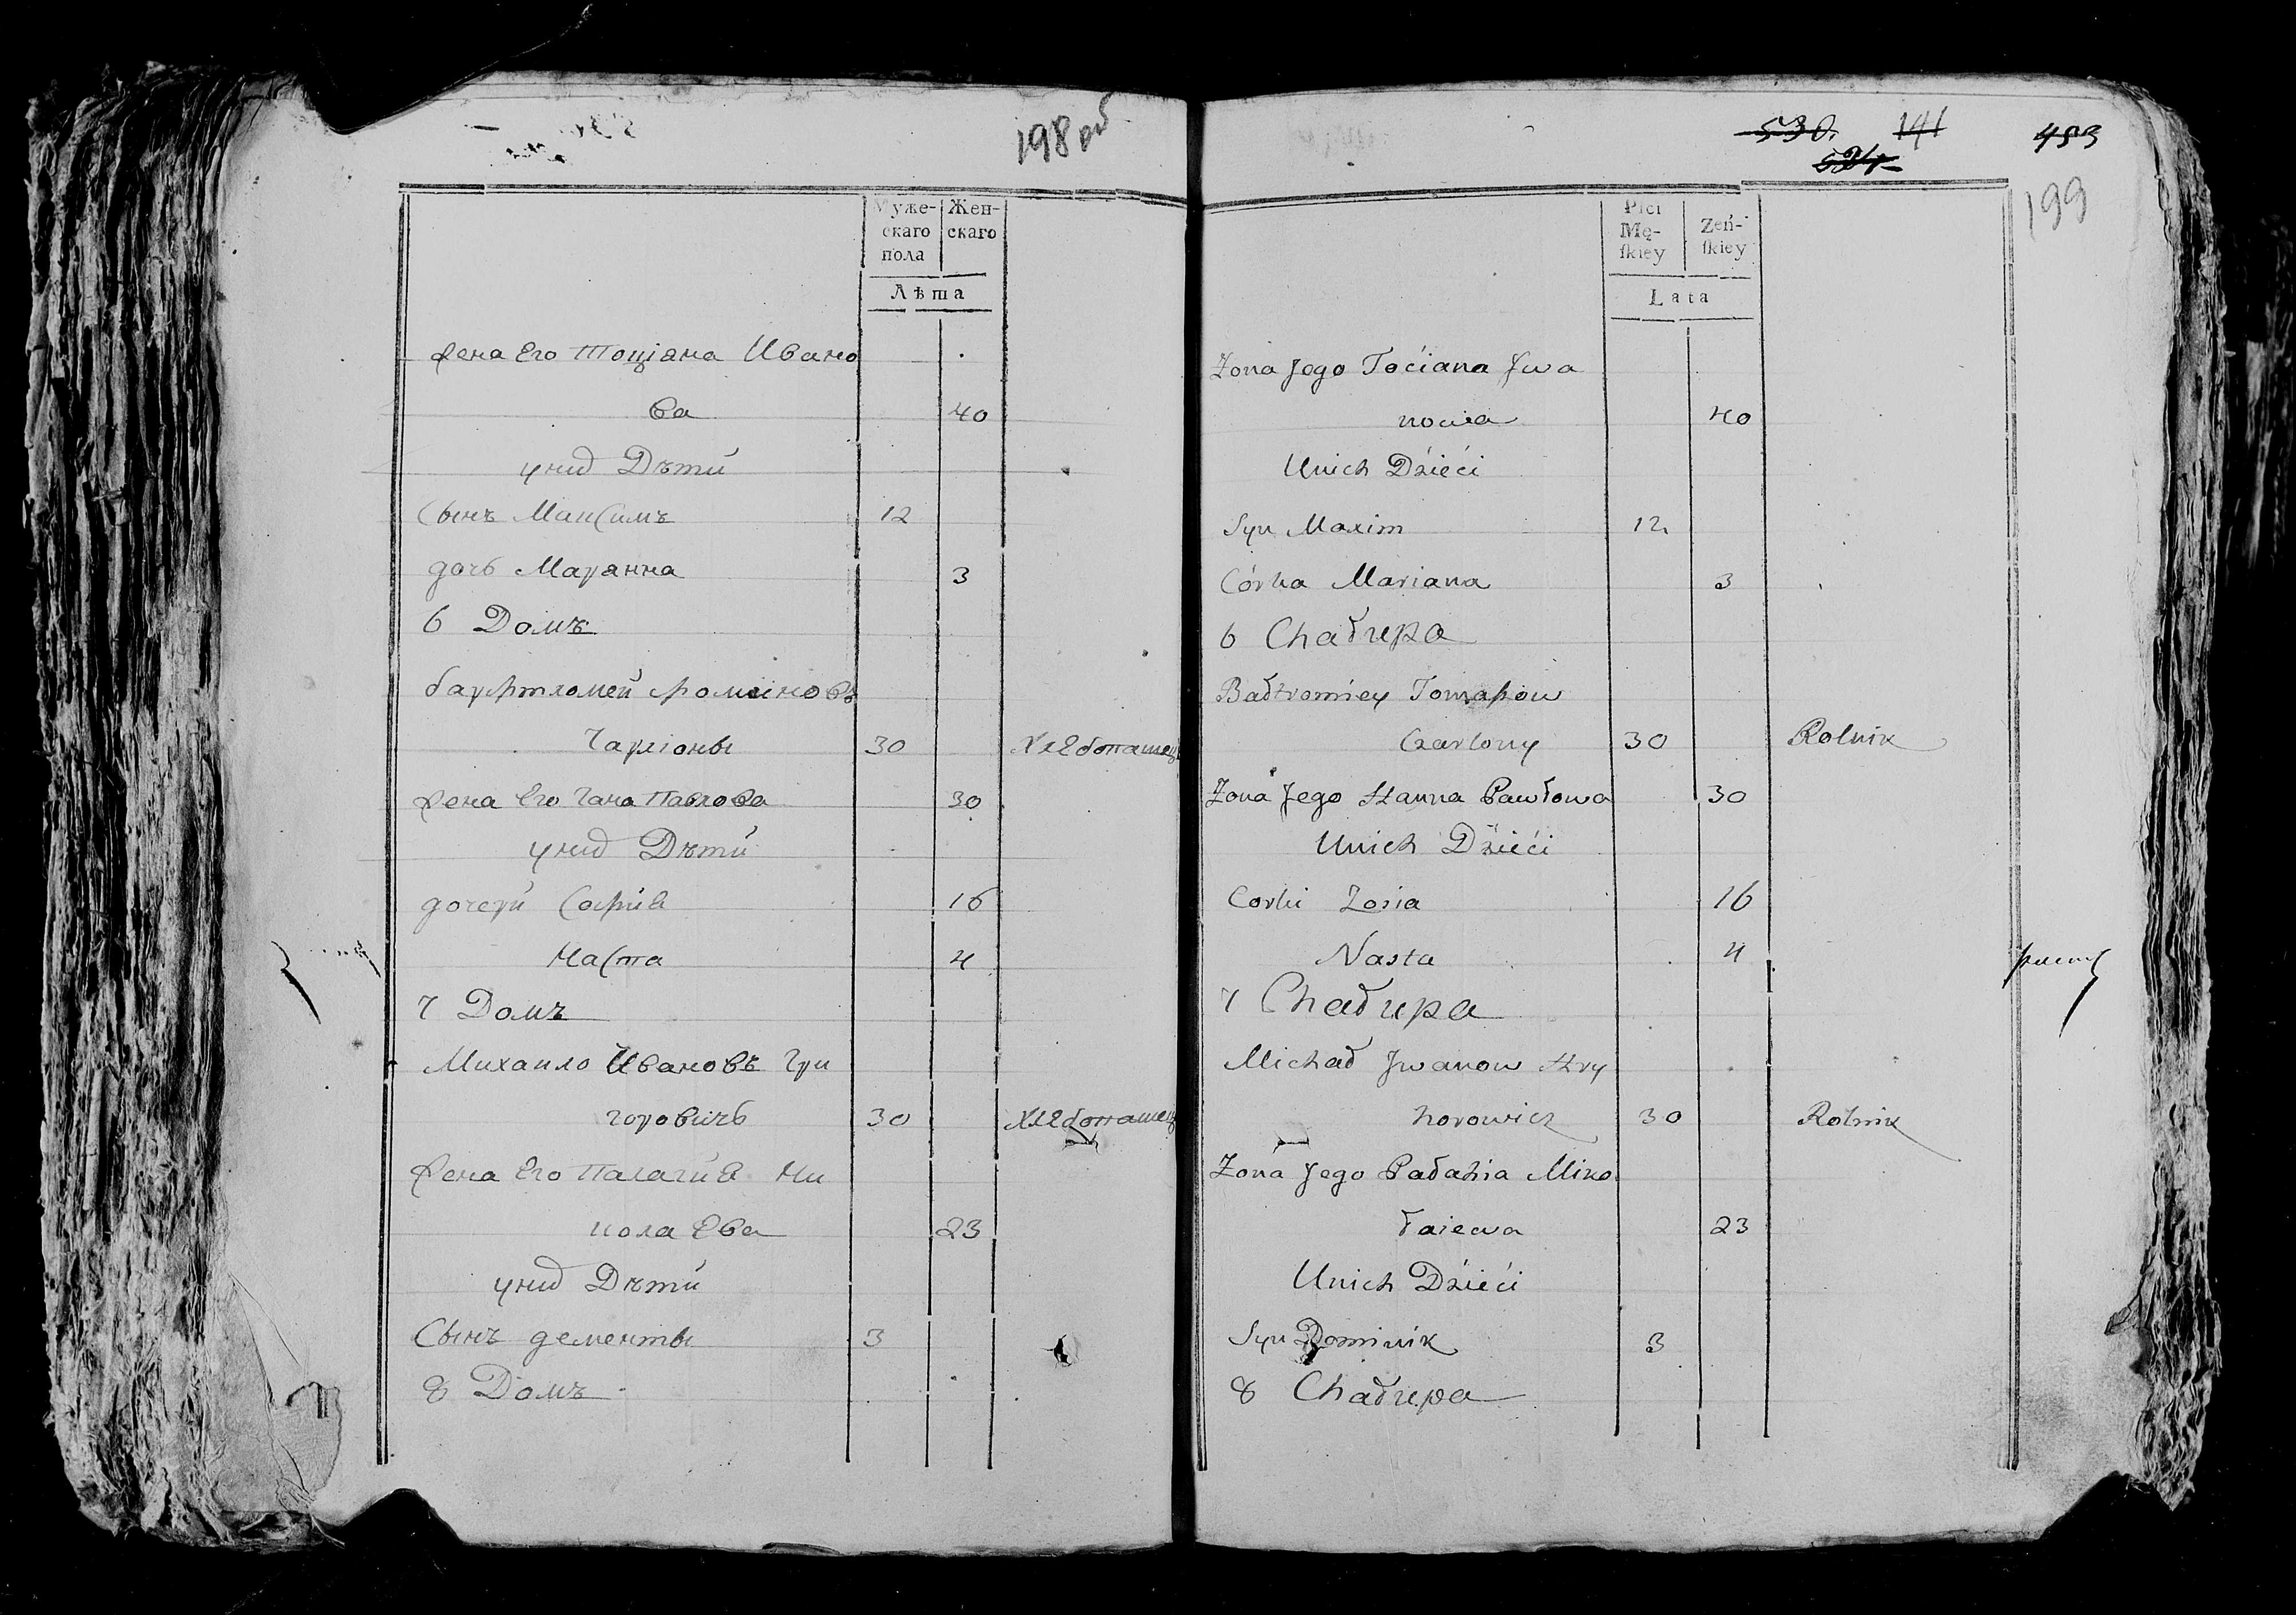 198 об
Муже-
скаго
пола
Жен-
скаго
Лѣта
жена Его Тоціяна Ивано
ва 40
уних Дѣти
Сынъ Максимъ 12
дочь Марянна 3
6 Домъ
барфтломей Романовъ
Чарлоны 30 Хлебопашец
жена Его Гана Павлова 30
уних Дѣти
дочери София 16
Наста 4
7 Домъ
Михаило Ивановъ Гри
горовичь 30 Хлебопашец
жена Его Палагия Ни
колаева 23
уних Дѣти
Сынъ дементы 3
8 Домъ
530. 141 453
199
Płci
Mę-
ſkiey
Zeń-
ſkiey
Lata
Zona Jego Tociana Jwa
nowa 40
Unich Dzieći
Syn Maxim 12
Córka Mariana 3
6 Chałupa
Bałtromiey
Czarlony 30 Rolnik
Zona Jego Hanna Pawłowa 30
Unich Dzieći
Corki Zosia 16
Nasta 4
7 Chałupa
Michał Jwanow Hry
horowicz 30 Rolnik
Zona Jego Pałahia Miko
łaiewa 23
Unich Dzieći
Syn Dominik 3
8 Chałupa